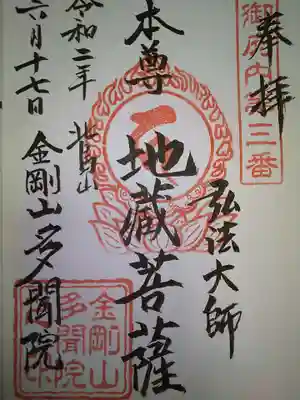 奉拝
御府内第三番
弘法大師
本尊
地蔵菩薩
令和二年
六月十七日
金剛山多聞院
金剛山
多聞院